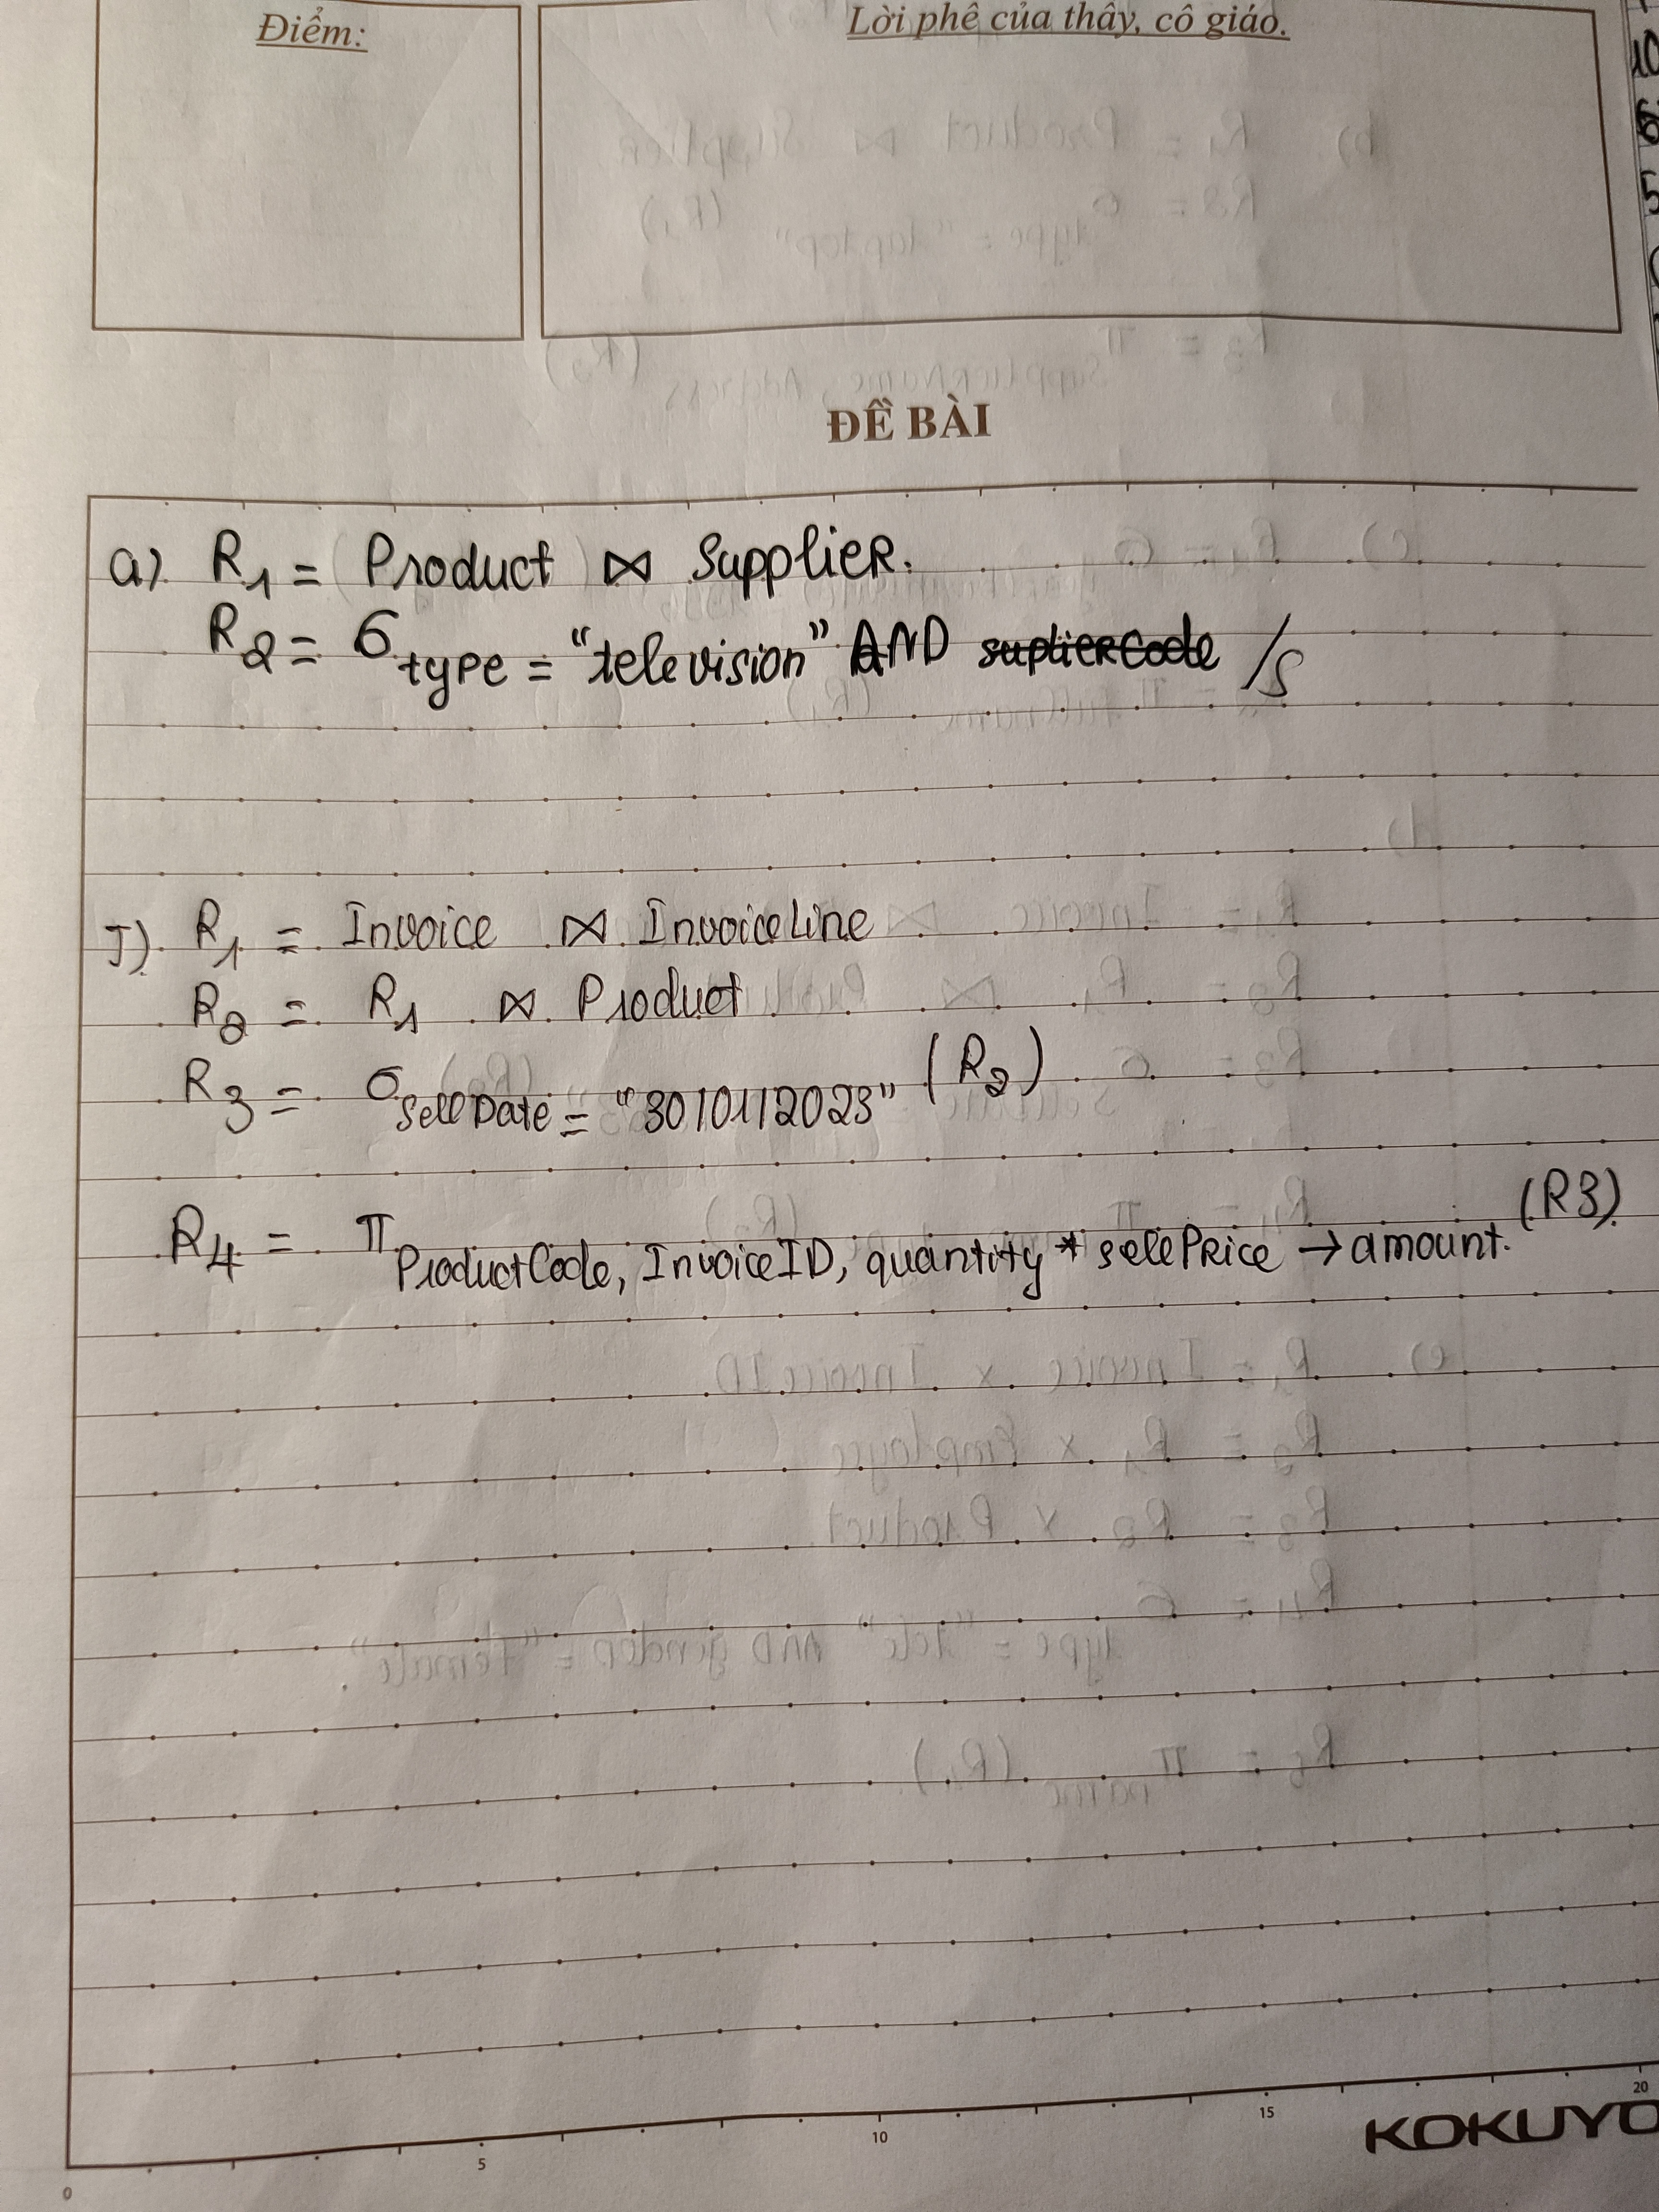 Điểm:
Lời phê của thầy, cô giáo.
ĐỀ BÀI
a) R1 = Product ⋈ Supplier.
R2 = σ type = "television" AND suplierCode /S
J) R1 = Invoice ⋈ InvoiceLine
R2 = R1 ⋈ Product
R3 = σ SellDate = "30/01/2023" (R2)
R4 = π ProductCode, InvoiceID, quantity * sellPrice → amount. (R3)
0 5 10 15 20
KOKUYO